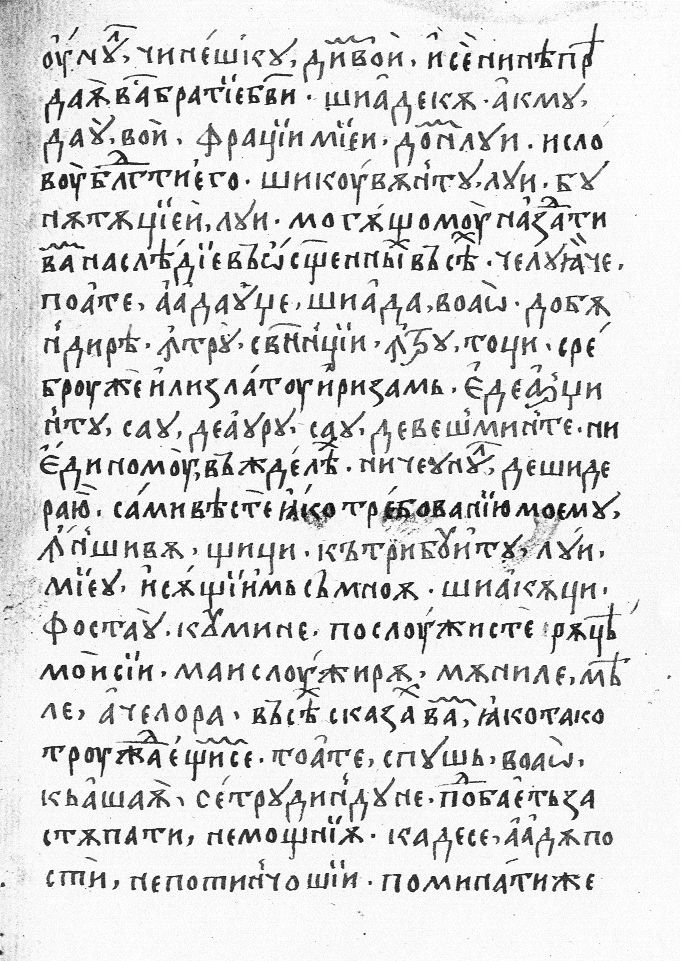 ѹ҆нꙋⷧ, чинешїкꙋ, дивѡй, и҆сѐнинѣпрⷣ
даꙗ҆ваⷭ҇братїебж҃ви · шиа҆декѫ · а҆кмꙋ,
даꙋ̀, вой, фраций мїеи, дом҃нлꙋи · исло
воуⷨбл҃гⷣтиего · шикоувѫн҆тꙋ, лꙋи · бꙋ
нѫтѫцїей, лꙋи · могѫ́щомоуⷨназⷣати
ва҃наслѣ́дїевъѡ҆сщ҃енныⷯвъсѣⷯ · челꙋꙗ҆че,
поа҆те, а҆а҆даꙋ҆це, шиа҆да, воаѡ̀ · добѫ
н҆дирѣ · ꙟ҆трꙋ̀, сви҃нцїи, ꙟ҆тꙋ, тоци · сре́
броужеи҆лизла́тоуи҆ризамь · є҆деарⷢ҇ци
н҆тꙋ, саꙋ, деаꙋрꙋ, саꙋ, девешмин҆те · ни
є҆диномоуⷤ, въждєлѣⷯ · ничеꙋнꙋⷧ, дешиде
раю̀ · са́мивѣстѐ ꙗ҆котре́бованїюмоемꙋ,
ꙟ҆н҆шивѫ, щици · кътрибꙋитꙋ, лꙋи,
мїеꙋ, и҆сѫщїи҆мьсъмноѫ · шиа҆кѫци,
фостаꙋ̀, кꙋмине · послоу́жистѐ рѫцѣⷭ҇
мои҆сїи · маислоу́жирѫ, мѫниле, мѣ
ле, а҆челора · въсѣⷯ сказаⷯва҃, ꙗ҆котако
троуждⷣаещи҃мсе · тоа҆те, спꙋшь, воаѡ̀,
къа҆шаꙗ҆, се́трꙋдин҆дꙋне · поⷣбаетьза
стѫпати, немощнїѫ · кадесе, а҆а҆дѫпо
сти҆, непотин҆чошїи · помина́тиже